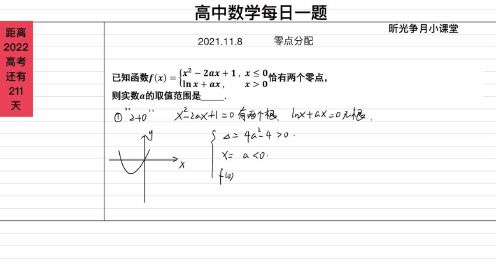 高中数学每日一题
昕光争月小课堂
距离
2022
高考
还有
211
天
2021.11.8 零点分配
已知函数f(x)={x²−2ax+1, x≤0
ln x+ax, x>0
恰有两个零点,
则实数a的取值范围是_____.
① "2+0" x²-2ax+1=0有两个根, lnx+ax=0无根.
{ Δ=4a²-4>0.
x= a<0.
f(0)
y
x